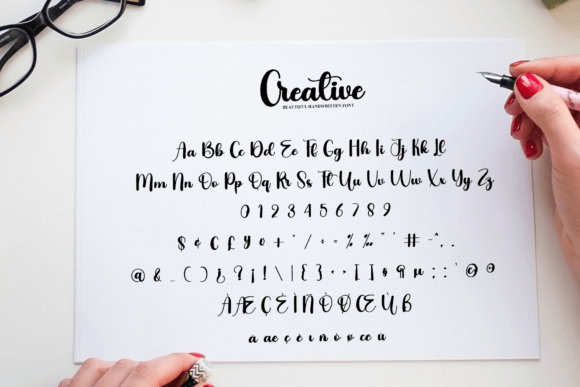 Creative
BEAUTIFUL HANDWRITTEN FONT
Aa Bb Cc Dd Ee Ff Gg Hh Ii Jj Kk Ll
Mm Nn Oo Pp Qq Rr Ss Tt Uu Vv Ww Xx Yy Zz
0 1 2 3 4 5 6 7 8 9
$ ¢ € £ ¥ + / ÷ = % ‰ " ' # ^ . ,
@ & _ ( ) ¿ ? ¡ ! \ | { } [ ] § ¶ µ : ; © ®
À Æ Ç È Ì Ñ Ò Ø Œ Ù ß
à æ ç è ì ñ ò ø œ ù